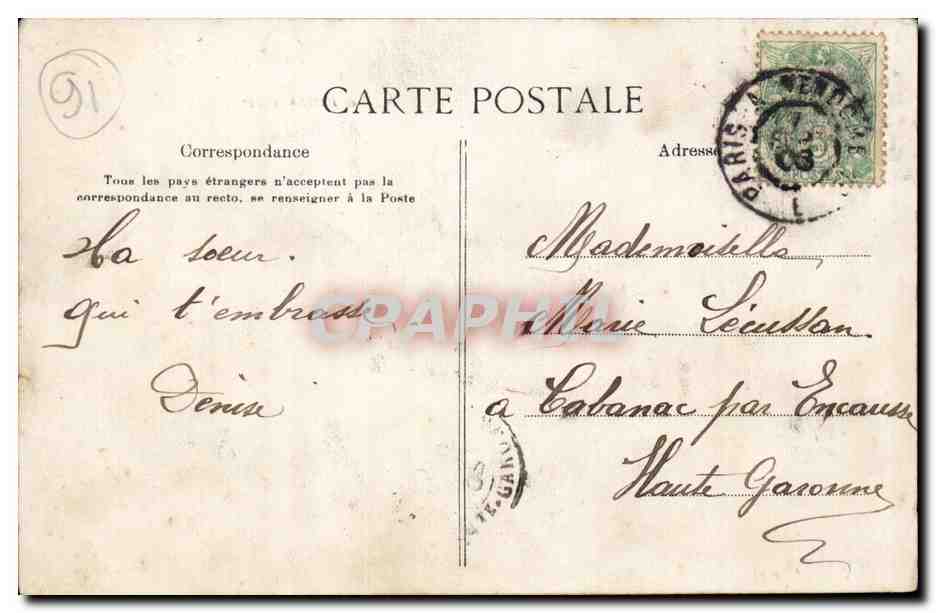 91
CARTE POSTALE
Correspondance
Tous les pays étrangers n'acceptent pas la
correspondance au recto, se renseigner à la Poste
Ta soeur.
qui t'embrasse
Dénise
Adresse
PARIS A VENDOME
08
1
Mademoiselle
Marie Lécussan
a Cabanac par Encausse
Haute Garonne
TE-GAR
CPAPHIL